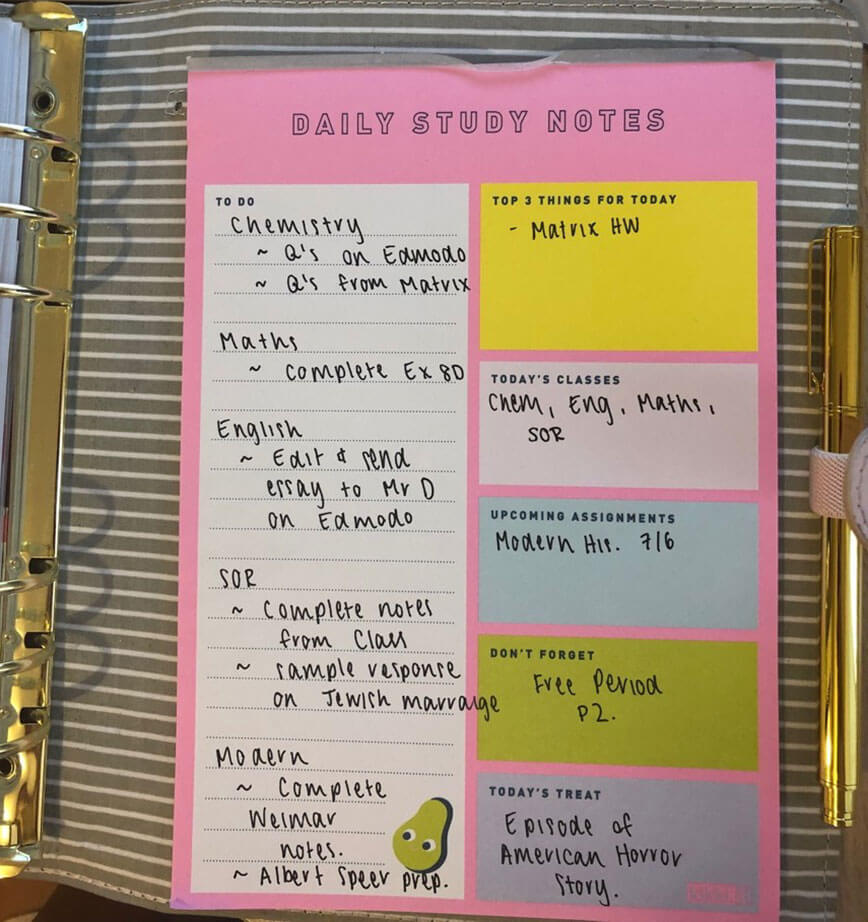 DAILY STUDY NOTES
TO DO
Chemistry
~ Q's on Edmodo
~ Q's from Matrix
Maths
~ Complete Ex 8D
English
~ Edit & send
essay to Mr D
on Edmodo
SOR
~ Complete notes
from Class
~ sample response
on Jewish marraige
Modern
~ Complete
Weimar
notes.
~ Albert Speer prep.
TOP 3 THINGS FOR TODAY
- Matrix HW
TODAY'S CLASSES
Chem, Eng, Maths,
SOR
UPCOMING ASSIGNMENTS
Modern His. 7/6
DON'T FORGET
Free Period
P2.
TODAY'S TREAT
Episode of
American Horror
Story.